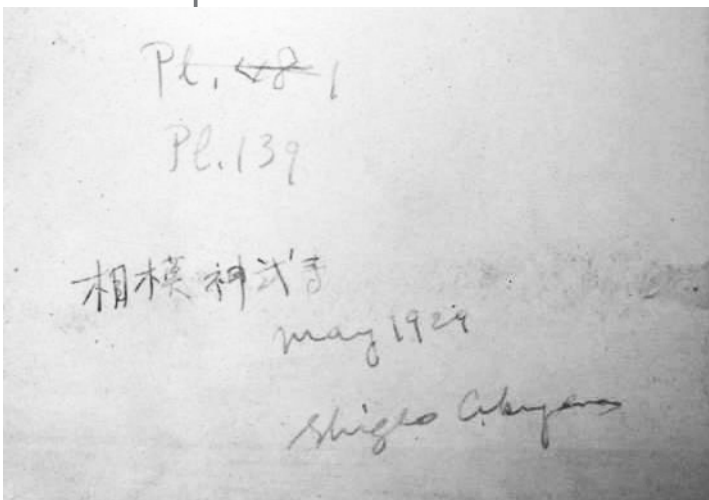 Pl. 48 1
Pl. 139
相模神武寺
May 1929
Shigeo Akiyama